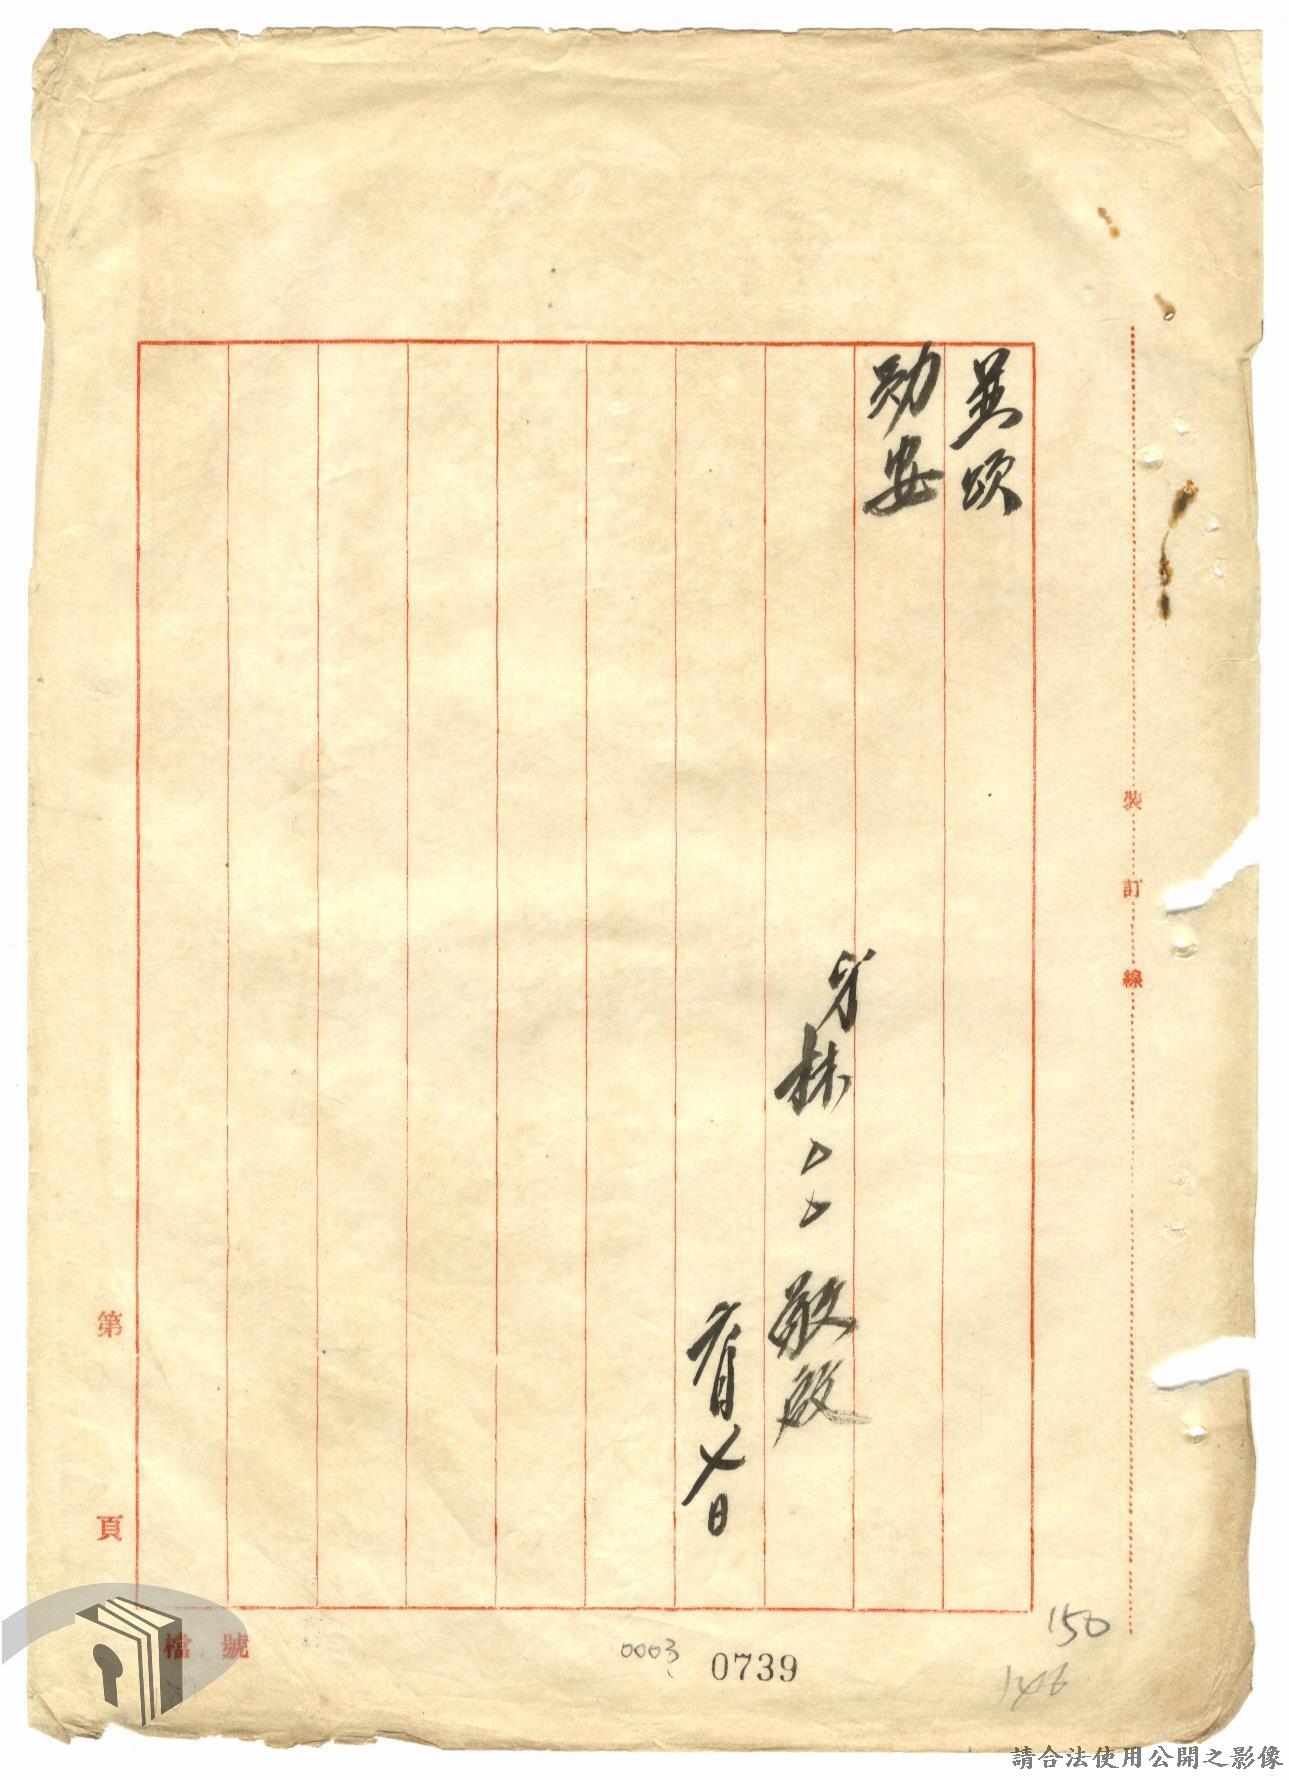 並頌
勛安
弟林○○敬啟
六月廿七日
裝訂線
第 頁
檔號
0003
0739
150
146
請合法使用公開之影像